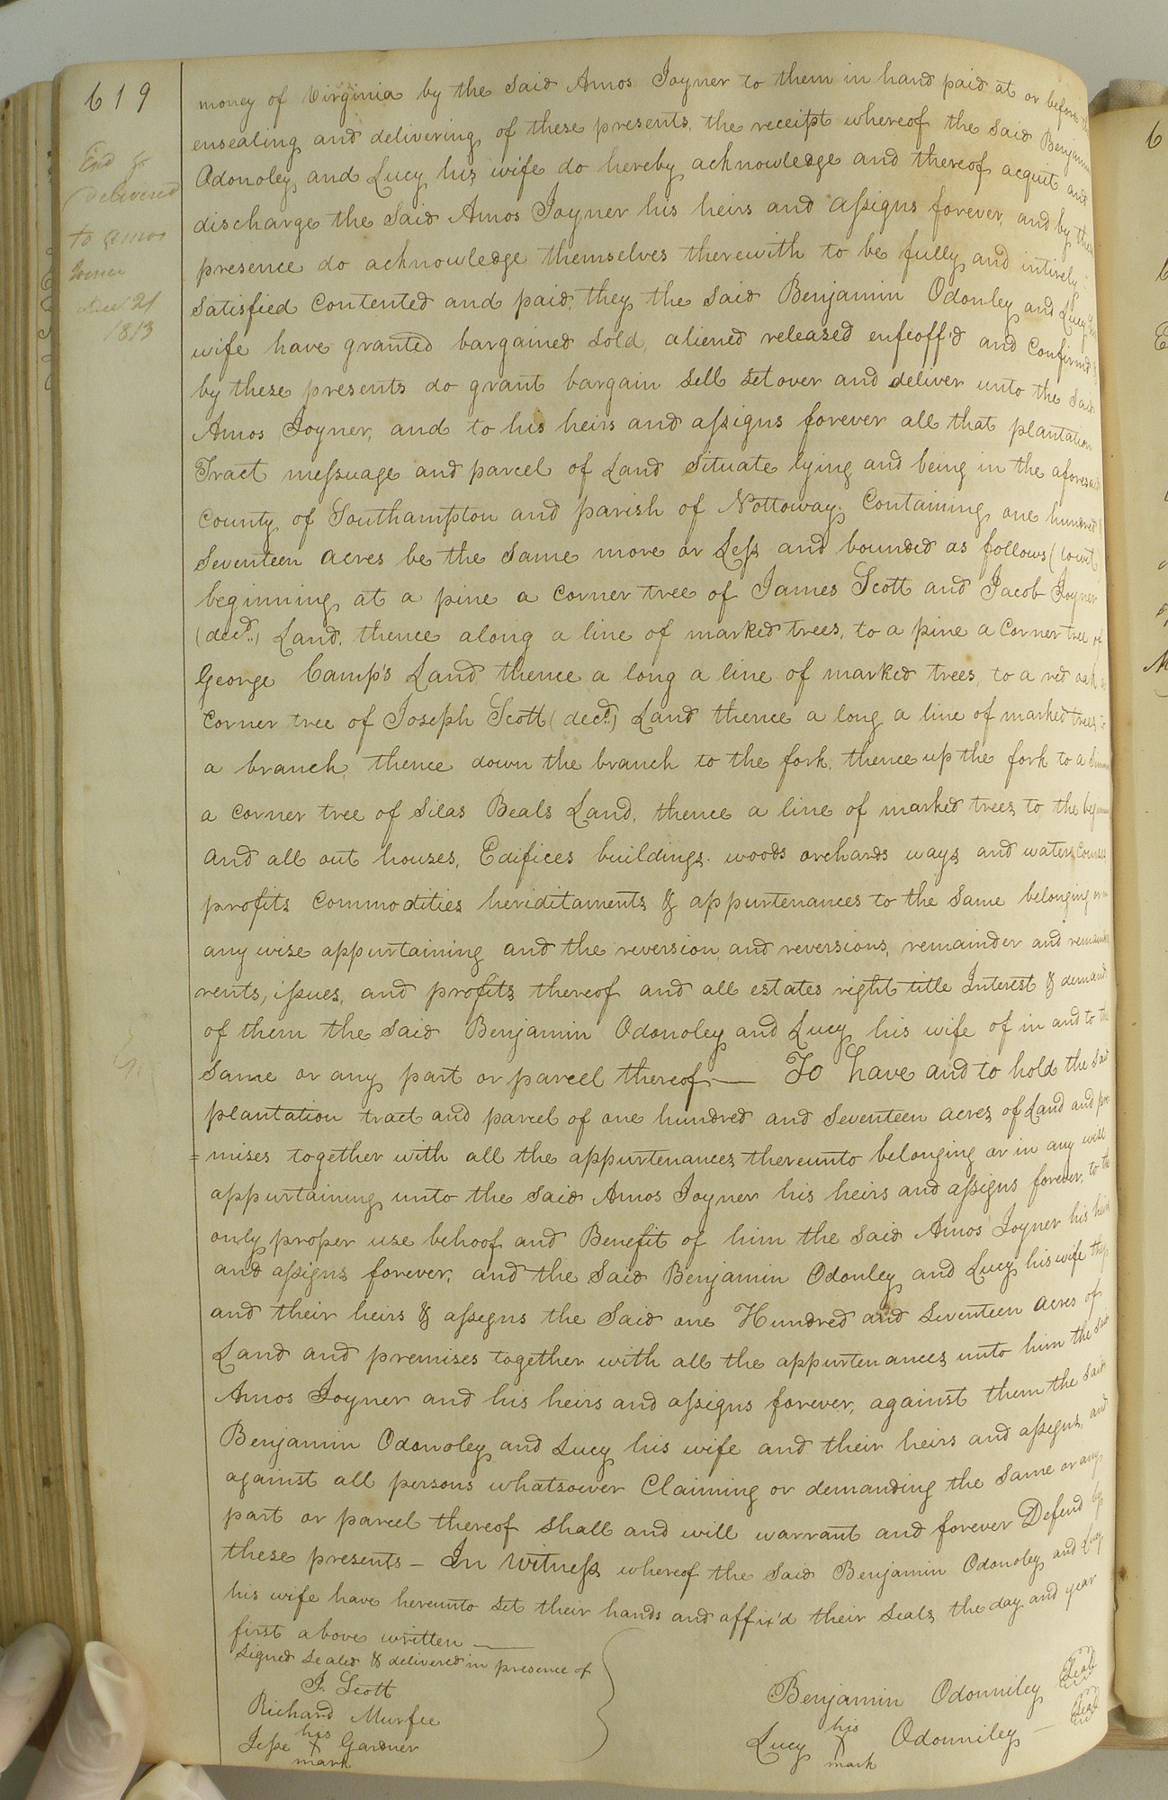 619
Exd &
delivered
to Amos
Joiner
Decr 21
1813
money of Virginia by the Said Amos Joyner to them in hand paid at or before the
ensealing and delivering of these presents, the receipt whereof the Said Benjamin
Odonoley and Lucy his wife do hereby acknowledge and thereof acquit and
discharge the Said Amos Joyner his heirs and assigns forever, and by these
presence do acknowledge themselves therewith to be fully and intirely
Satisfied Contented and paid, they the Said Benjamin Odonley and Lucy his
wife have granted bargained Sold, aliened released enfeoff'd and Confirmed &
by these presents do grant bargain Sell Set over and deliver unto the Said
Amos Joyner, and to his heirs and assigns forever all that plantation
Tract messuage and parcel of Land Situate lying and being in the aforesaid
County of Southampton and parish of Nottoway Containing one hundred &
Seventeen acres be the Same more or Less and bounded as follows (towit)
beginning at a pine a Corner tree of James Scott and Jacob Joyner
(decd.) Land, thence along a line of marked trees, to a pine a Corner tree of
George Camp's Land thence a long a line of marked trees, to a red oak a
Corner tree of Joseph Scott (decd.) Land thence a long a line of marked trees to
a branch, thence down the branch to the fork, thence up the fork to a
a corner tree of Silas Beals Land, thence a line of marked trees to the
and all out houses, Edifices buildings woods orchards ways and waters, Courses
profits Commodities hereditaments & appurtenances to the Same belonging or in
any wise appurtaining and the reversion and reversions, remainder and remainders
rents, issues, and profits thereof and all estates right title Interest & demand
of them the Said Benjamin Odonoley and Lucy his wife of in and to the
Same or any part or parcel thereof — To have and to hold the Said
plantation tract and parcel of one hundred and Seventeen acres of Land and pre
=mises together with all the appurtenances thereunto belonging or in any wise
appurtaining unto the Said Amos Joyner his heirs and assigns forever, to the
only proper use behoof and Benefit of him the Said Amos Joyner his heirs
and assigns forever, and the Said Benjamin Odonley and Lucy his wife they
and their heirs & assegns the Said one Hundred and Seventeen acres of
Land and premises together with all the appurtenances unto him the Said
Amos Joyner and his heirs and assigns forever, against them the Said
Benjamin Odonoley and Lucy his wife and their heirs and assigns, and
against all persons whatsoever Claiming or demanding the Same or any
part or parcel thereof Shall and will warrant and forever Defend by
these presents — In Witness whereof the Said Benjamin Odonoley and Lucy
his wife have hereunto Set their hands and affix'd their Seals the day and year
first above written —
Signed Sealed & delivered in presence of
J. Scott
Richard Murfee
his
Jesse X Gardner
mark
Benjamin Odonniley Seal
his
Lucy X Odonniley — Seal
mark